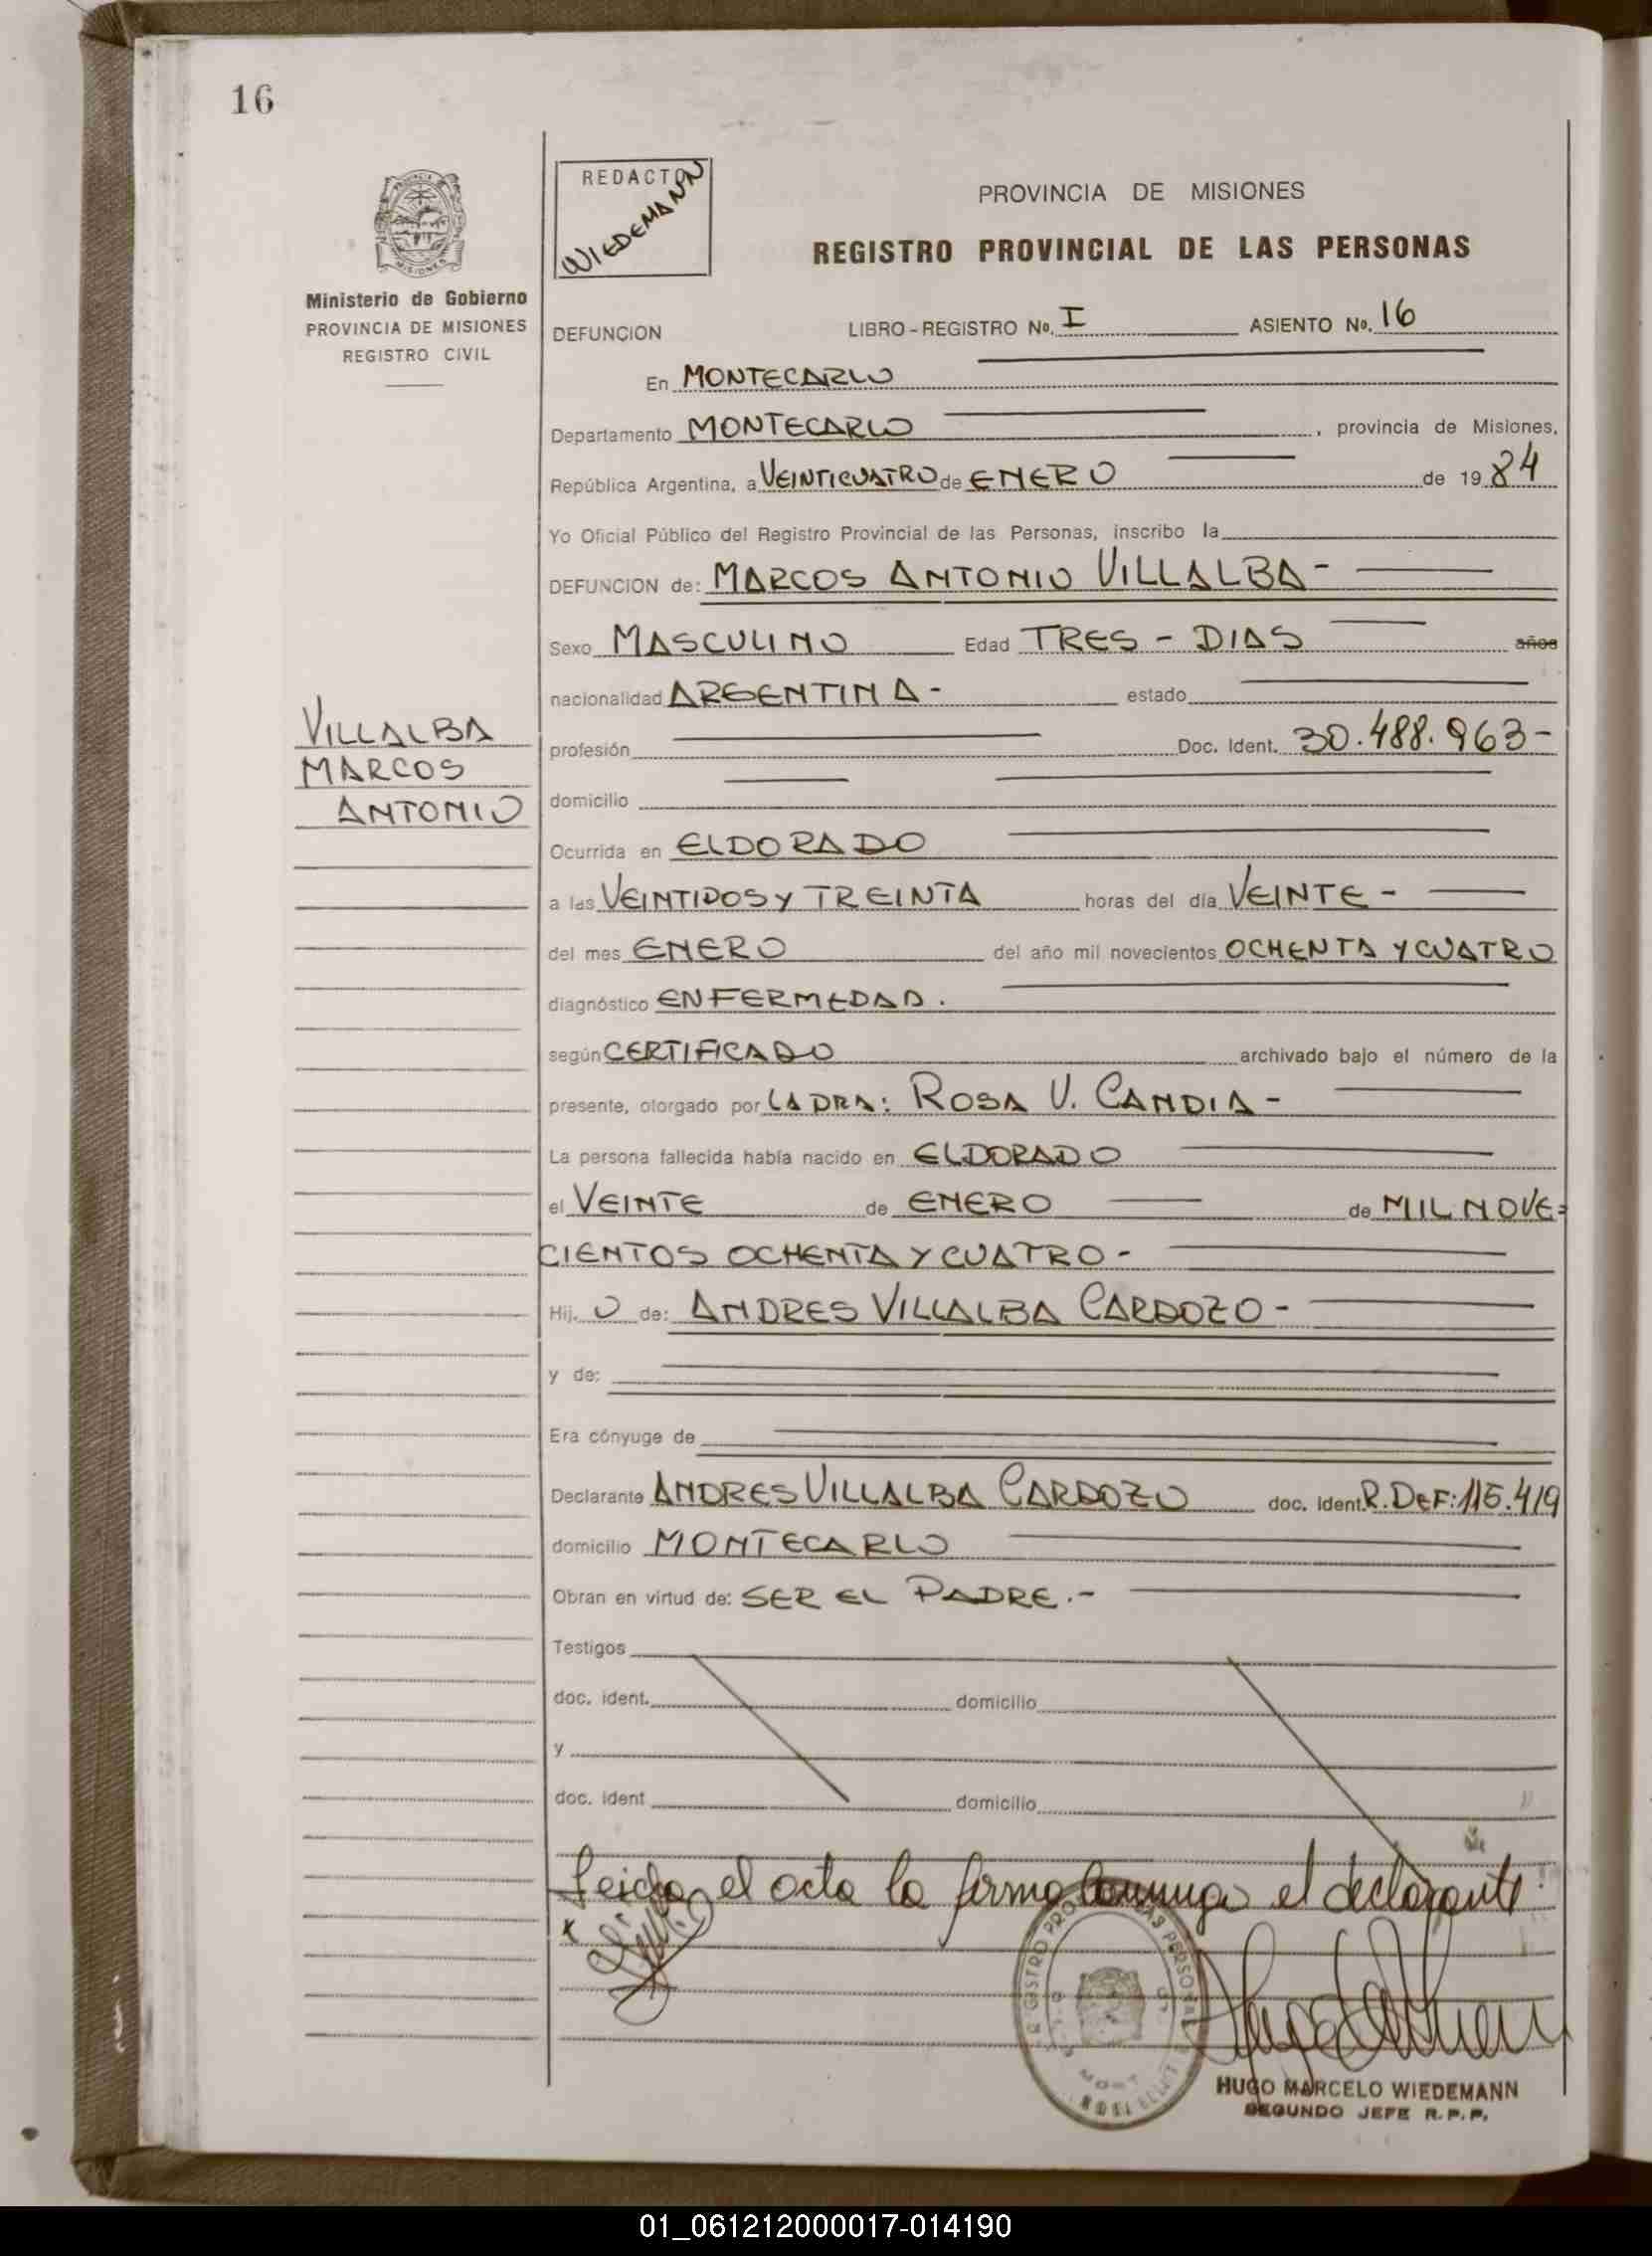 16
REDACTO
WIEDEMANN
PROVINCIA DE MISIONES
REGISTRO PROVINCIAL DE LAS PERSONAS
Ministerio de Gobierno
PROVINCIA DE MISIONES
REGISTRO CIVIL
DEFUNCION LIBRO - REGISTRO No. I ASIENTO No. 16
En MONTECARLO
Departamento MONTECARLO, provincia de Misiones,
República Argentina, a VEINTICUATRO de ENERO de 1984
Yo Oficial Público del Registro Provincial de las Personas, inscribo la
DEFUNCION de: MARCOS ANTONIO VILLALBA -
Sexo MASCULINO Edad TRES - DIAS años
nacionalidad ARGENTINA - estado
VILLALBA
MARCOS
ANTONIO
profesión Doc. Ident. 30.488.963 -
domicilio
Ocurrida en ELDORADO
a las VEINTIDOS Y TREINTA horas del día VEINTE -
del mes ENERO del año mil novecientos OCHENTA Y CUATRO
diagnóstico ENFERMEDAD.
según CERTIFICADO archivado bajo el número de la
presente, otorgado por LA DRA: ROSA V. CANDIA -
La persona fallecida había nacido en ELDORADO
el VEINTE de ENERO de MIL NOVE=
CIENTOS OCHENTA Y CUATRO -
Hij. O de: ANDRES VILLALBA CARDOZO -
y de:
Era cónyuge de
Declarante ANDRES VILLALBA CARDOZO doc. Ident. R.DEF: 115.419
domicilio MONTECARLO
Obran en virtud de: SER EL PADRE.-
Testigos
doc. ident. domicilio
y
doc. ident domicilio
Leida el acta la firma conmigo el declarante
HUGO MARCELO WIEDEMANN
SEGUNDO JEFE R.P.P.
01_061212000017-014190